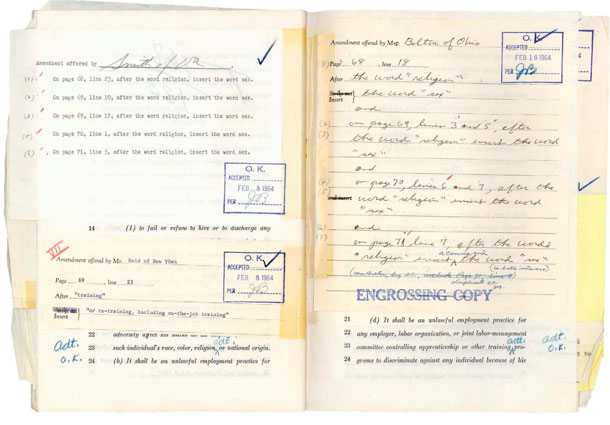 Amendment offered by Smith of VA
(1) On page 68, line 23, after the word religion, insert the word sex.
(2) On page 69, line 10, after the word religion, insert the word sex.
(3) On page 69, line 17, after the word religion, insert the word sex.
(4) On page 70, line 1, after the word religion, insert the word sex.
(5) On page 71, line 5, after the word religion, insert the word sex.
O. K.
ACCEPTED
FEB 8 1964
PER JB
14 (1) to fail or refuse to hire or to discharge any
VII
Amendment offered by Mr. Reid of New York
Page 69 , line 23
After "training"
Insert "or re-training, including on-the-job training"
O. K.
ACCEPTED
FEB 8 1964
PER JB
22 adversely
adt.
23 such individual's race, color, religion, or national origin.
24 (b) It shall be an unlawful employment practice for
adt.
O.K.
Amendment offered by Mrs. Bolton of Ohio
(1) Page 68 line 18
After the word "religion"
Strike out
Insert the word "sex"
and
(2) on page 69, lines 3 and 5, after
(3) the words "religion" insert the word
"sex"
and
(4) on page 70, lines 6 and 7, after the
(5) word "religion" insert the word
"sex"
(6) and
(7) on page 71 line 7, after the words
"religion" insert the word "sex"
a comma and
O. K.
ACCEPTED
FEB 10 1964
PER JB
ENGROSSING COPY
21 (d) It shall be an unlawful employment practice for
22 any employer, labor organization, or joint labor-management
adt.
23 committee controlling apprenticeship or other training pro-
24 grams to discriminate against any individual because of his
adt.
O.K.